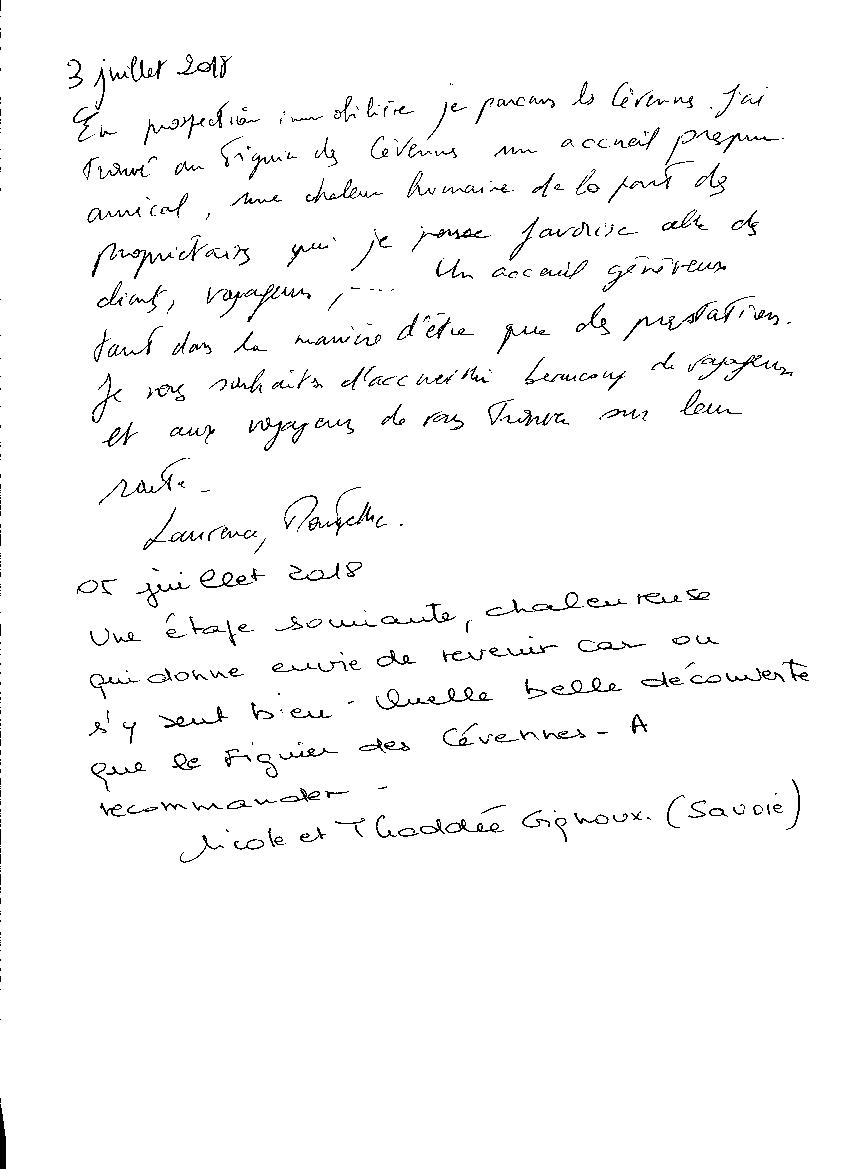 3 juillet 2018
En prospection immobilière je parcours les Cévennes. J'ai
trouvé au Figuier des Cévennes un accueil presque
amical, une chaleur humaine de la part des
propriétaires qui je pense favorise celle des
clients, voyageurs, .... Un accueil généreux
tant dans la manière d'être que des prestations.
Je vous souhaite d'accueillir beaucoup de voyageurs
et aux voyageurs de vous trouver sur leur
route.
Laurence,
05 juillet 2018
Une étape souriante, chaleureuse
qui donne envie de revenir car on
s'y sent bien - Quelle belle découverte
que le Figuier des Cévennes - A
recommander -
Nicole et Thaddée Gignoux. (Savoie)